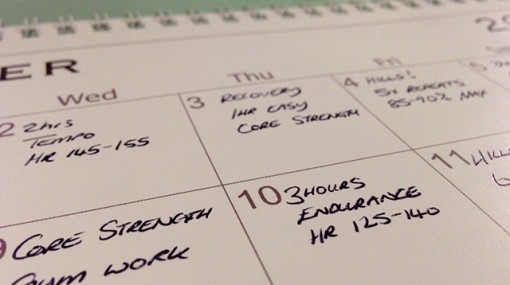 ER
Wed
Thu
Fri
2
2hrs
TEMPO
HR 145-155
3
RECOVERY
1HR EASY
CORE STRENGTH
4
HILLS!
5x REPEATS
85-90% MAX
5
9
CORE STRENGTH
GYM WORK
10
3HOURS
ENDURANCE
HR 125-140
11
HILLS